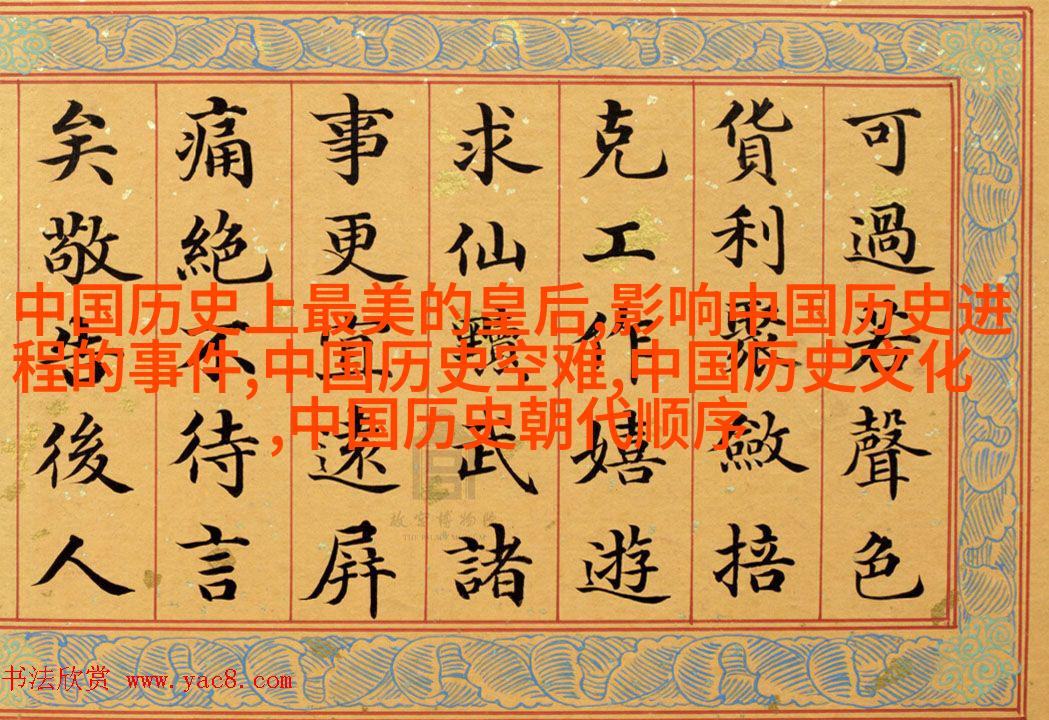 可過若聲色
貨利聚斂掊
克工作嬉遊
求仙黷武諸
事更宜遠屏
痛絕不待言
矣敬後人
中国历史上最美的皇后,影响中国历史进
程的事件,中国历史空难,中国历史文化
,中国历史朝代顺序
故宫博物院
THE PALACE MUSEUM
书法欣赏 www.yac8.com